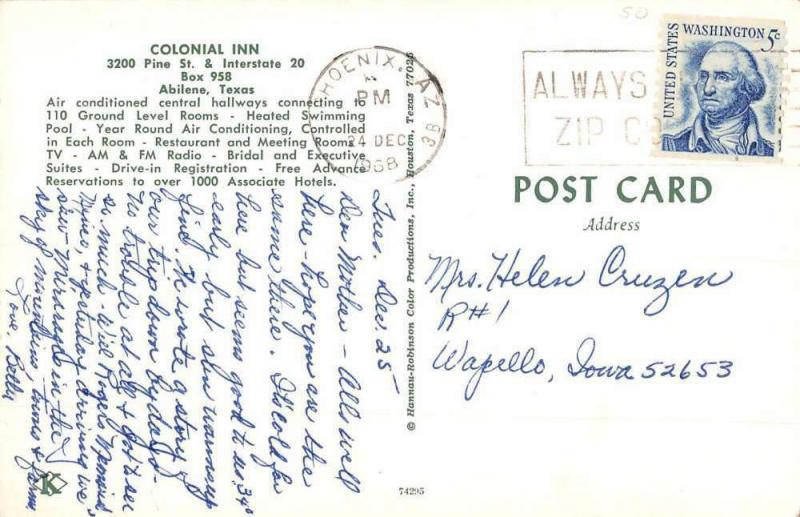 COLONIAL INN
3200 Pine St. & Interstate 20
Box 958
Abilene, Texas
Air conditioned central hallways connecting to
110 Ground Level Rooms - Heated Swimming
Pool - Year Round Air Conditioning, Controlled
in Each Room - Restaurant and Meeting Rooms
TV - AM & FM Radio - Bridal and Executive
Suites - Drive-in Registration - Free Advance
Reservations to over 1000 Associate Hotels.
Tues. Dec. 25
Dear Mother - All's well
here - hope you are the
same there. It's cold for
here but seems good to us. 34°
early but sun warms up
fast. We wrote a story of
our trip down by days -
No trouble at all & got to see
so much. Will Rogers Memorial
& yesterday driving we
saw mirages in the
sky of mountains, towns & farms
Love, Betty
K
© Hannau-Robinson Color Productions, Inc., Houston, Texas 77025
74295
50
PHOENIX, AZ
PM
24 DEC
1968
3B
ALWAYS
ZIP CO
UNITED STATES
WASHINGTON 5c
POST CARD
Address
Mrs. Helen Cruzen
R#1
Wapello, Iowa 52653